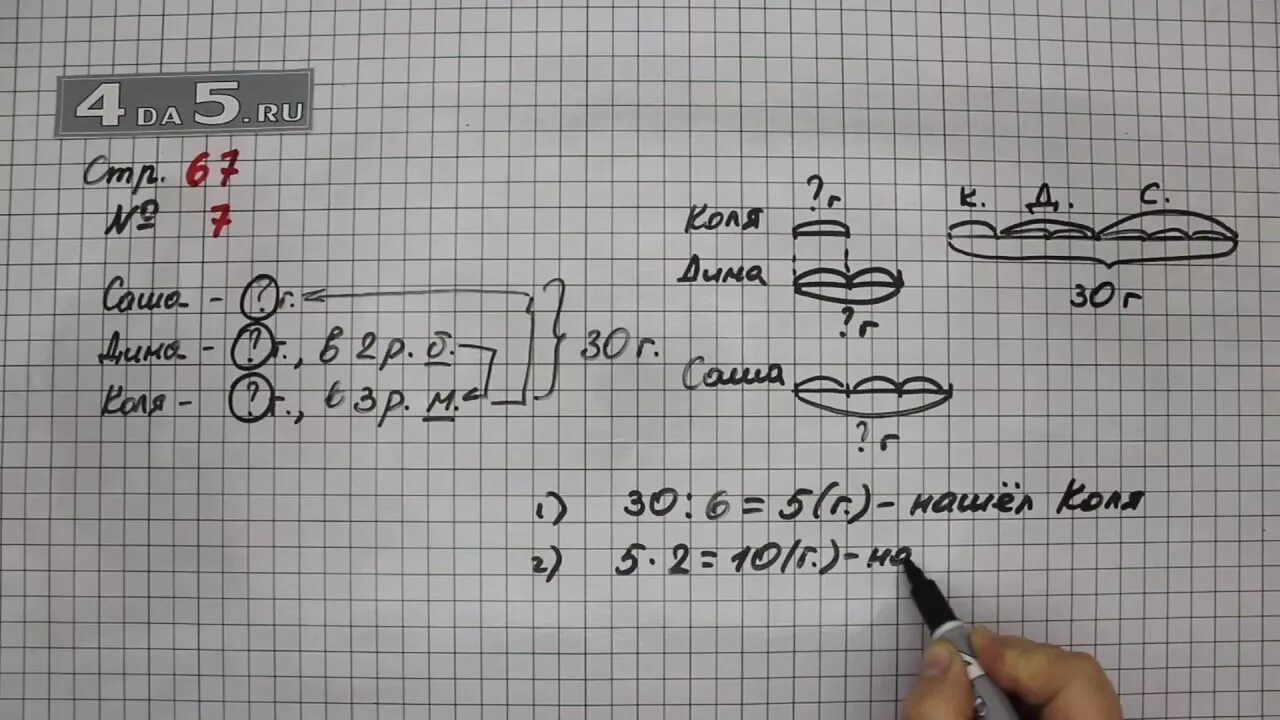 4 DA 5.RU
Стр. 67
№ 7
Саша - ? г.
Дима - ? г., в 2 р. б.
Коля - ? г., в 3 р. м.
30 г.
? г
Коля
Дима
? г
Саша
? г
К. Д. С.
30 г
1) 30 : 6 = 5 (г.) - нашёл Коля
2) 5 · 2 = 10 (г.) - на